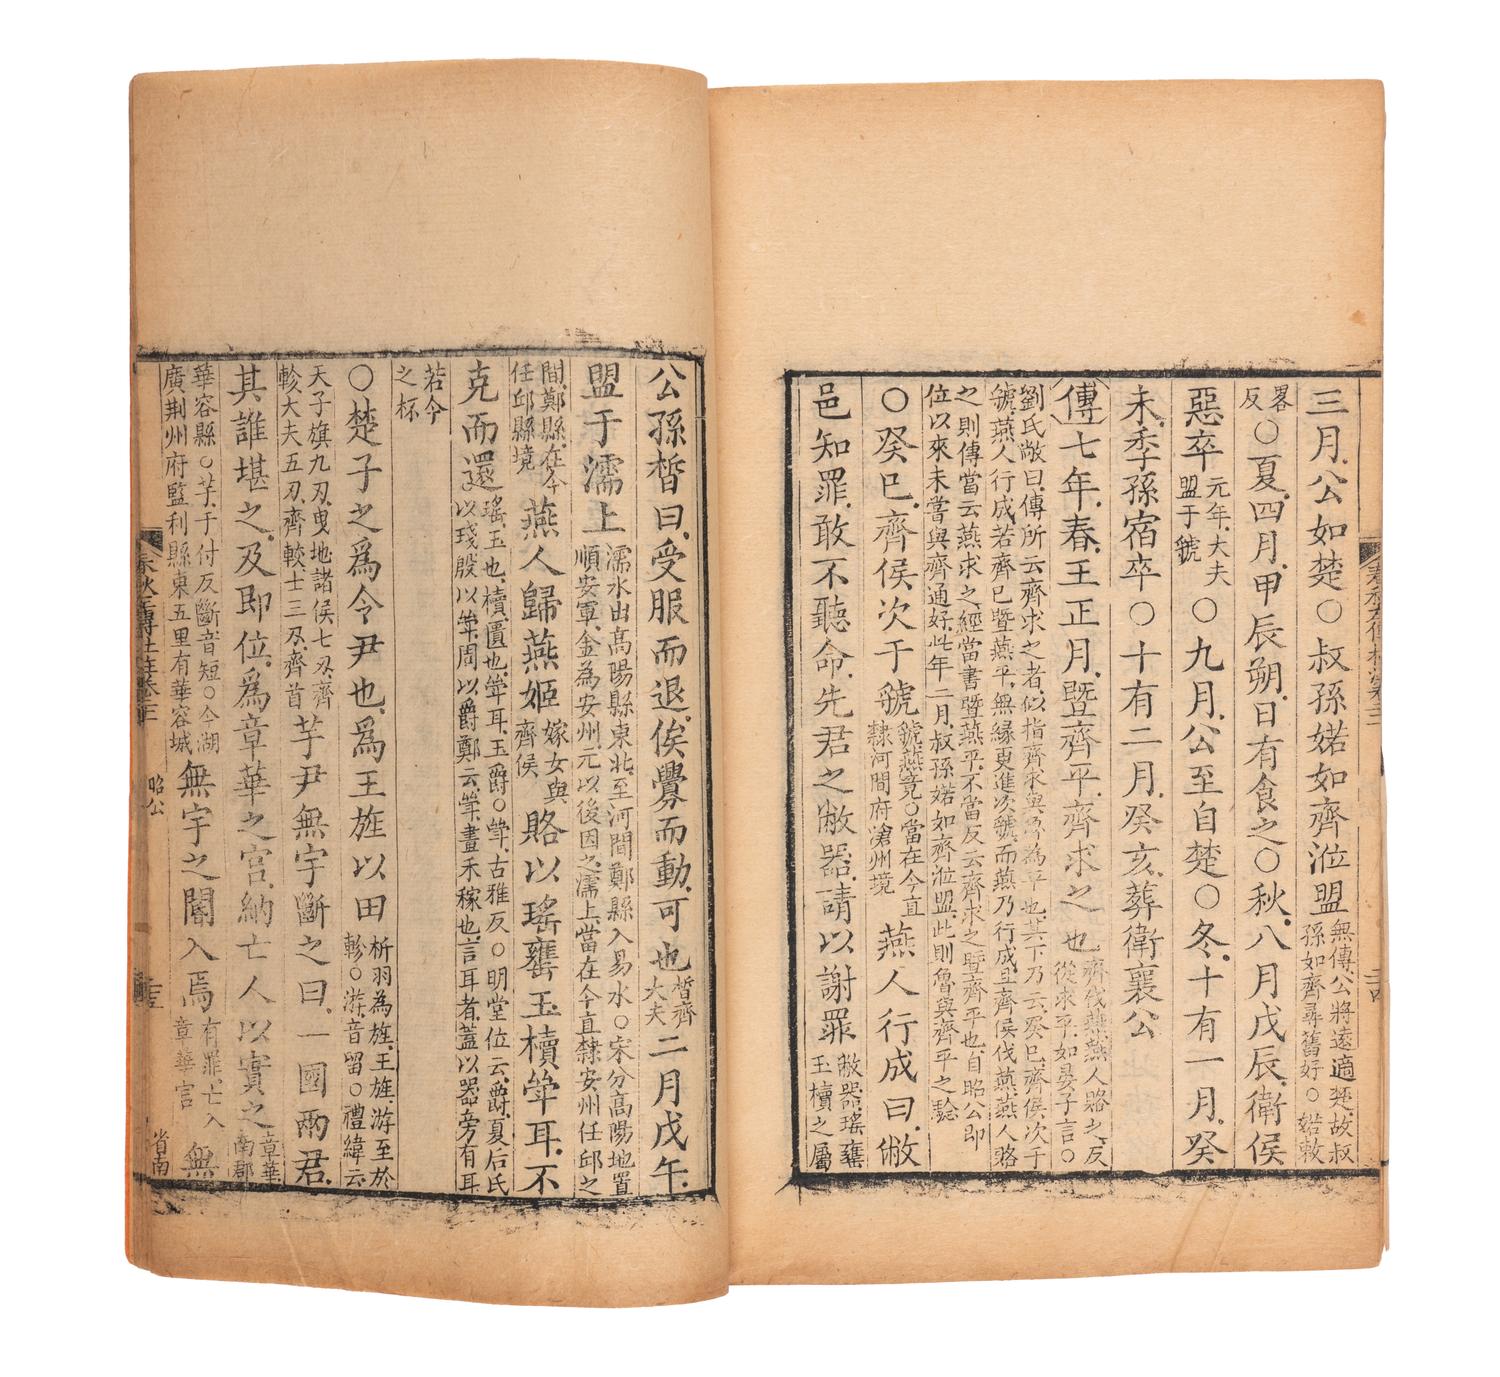 三月公如楚○叔孫婼如齊涖盟無傳公將遠適楚故叔孫如齊尋舊好○婼敕
畧反○夏四月甲辰朔日有食之○秋八月戊辰衛侯
惡卒元年大夫盟于虢○九月公至自楚○冬十有一月癸
未季孫宿卒○十有二月癸亥葬衛襄公
傳七年春王正月暨齊平齊求之也齊伐燕燕人賂之反從求平如晏子言○
劉氏敞曰傳所云齊求之者似指齊求與為平也其下乃云癸巳齊侯次于
虢燕人行成若齊已暨燕平無緣更進次虢而燕乃行成且齊侯伐燕燕人賂
之則傳當云燕求之經當書暨燕平不當反云齊求之暨齊平也自昭公即
位以來未嘗與齊通好此年二月叔孫婼如齊涖盟此則魯與齊平之驗
○癸巳齊侯次于虢虢燕竟○當在今直隸河間府滄州境燕人行成曰敝
邑知罪敢不聽命先君之敝器請以謝罪敝器瑤罋玉櫝之屬
公孫晳曰受服而退俟釁而動可也晳齊大夫二月戊午
盟于濡上濡水出高陽縣東北至河間鄚縣入易水○宋分高陽地置順安軍金為安州元以後因之濡上當在今直隸安州任邱之
間鄚縣在今任邱縣境燕人歸燕姬嫁女與齊侯賂以瑤罋玉櫝斝耳不
克而還瑤玉也櫝匱也斝耳玉爵○斝古雅反○明堂位云爵夏后氏以琖殷以斝周以爵鄭云斝畫禾稼也言耳者蓋以器旁有耳
若今之杯
○楚子之為令尹也為王旌以田析羽為旌王旌游至於軫○游音留○禮緯云
天子旗九刃曳地諸侯七刃齊軫大夫五刃齊較士三刃齊首芋尹無宇斷之曰一國兩君
其誰堪之及即位為章華之宮納亡人以實之章華南郡
華容縣○芋于付反斷音短○今湖廣荆州府監利縣東五里有華容城無宇之閽入焉有罪亡入章華宮無
昭公